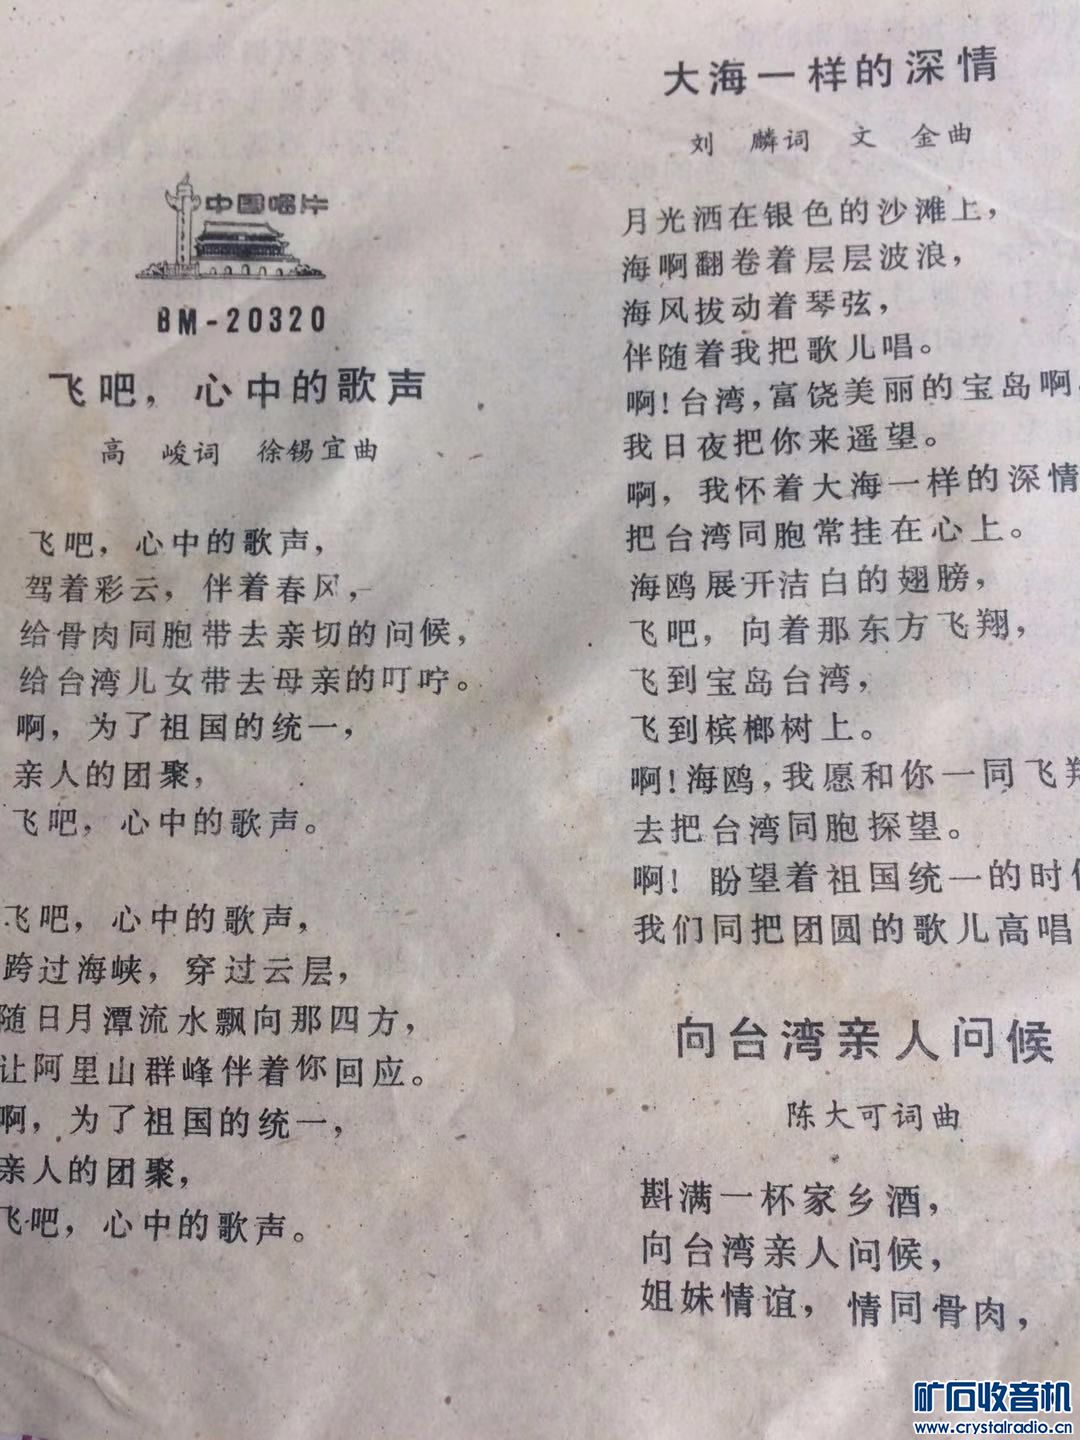 中国唱片
BM-20320
飞吧，心中的歌声
高 峻词 徐锡宜曲
飞吧，心中的歌声，
驾着彩云，伴着春风，
给骨肉同胞带去亲切的问候，
给台湾儿女带去母亲的叮咛。
啊，为了祖国的统一，
亲人的团聚，
飞吧，心中的歌声。
飞吧，心中的歌声，
跨过海峡，穿过云层，
随日月潭流水飘向那四方，
让阿里山群峰伴着你回应。
啊，为了祖国的统一，
亲人的团聚，
飞吧，心中的歌声。
大海一样的深情
刘 麟词 文 金曲
月光洒在银色的沙滩上，
海啊翻卷着层层波浪，
海风拔动着琴弦，
伴随着我把歌儿唱。
啊！台湾，富饶美丽的宝岛啊，
我日夜把你来遥望。
啊，我怀着大海一样的深情
把台湾同胞常挂在心上。
海鸥展开洁白的翅膀，
飞吧，向着那东方飞翔，
飞到宝岛台湾，
飞到槟榔树上。
啊！海鸥，我愿和你一同飞翔
去把台湾同胞探望。
啊！盼望着祖国统一的时
我们同把团圆的歌儿高唱
向台湾亲人问候
陈大可词曲
斟满一杯家乡酒，
向台湾亲人问候，
姐妹情谊，情同骨肉，
矿石收音机
www.crystalradio.cn